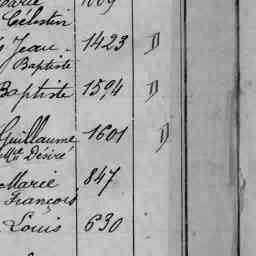 Célestin
Jean- 1423 D
Baptiste
Baptiste 1594 D
Guillaume 1601 D
Mie Désiré
Marie 847
François
Louis 630